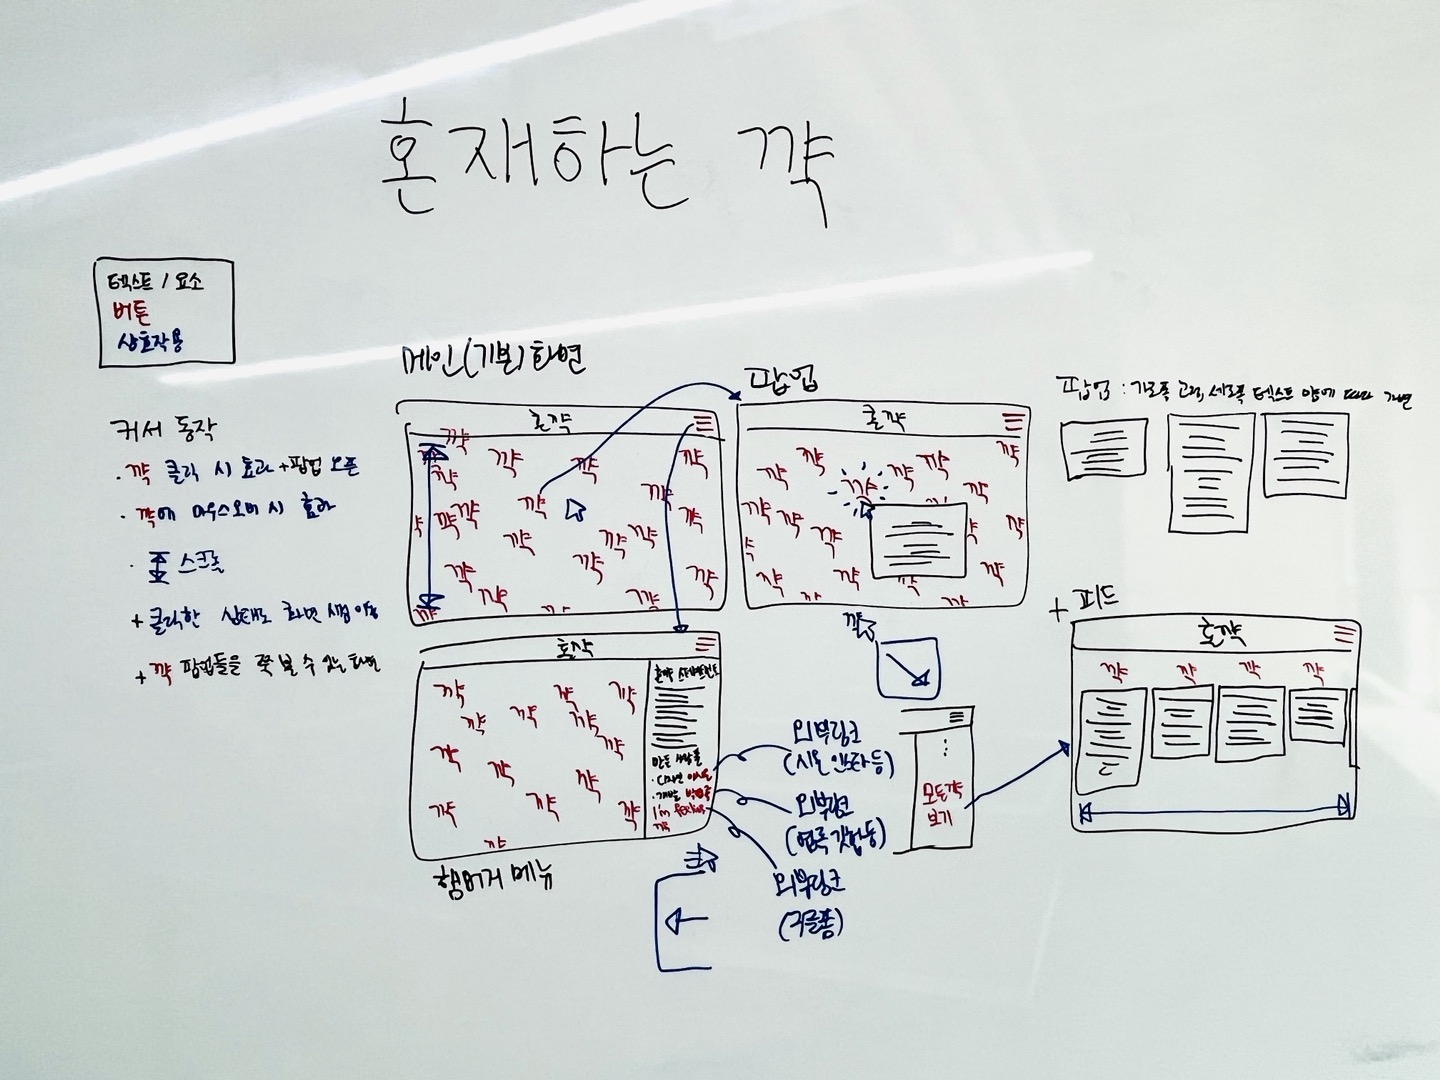 혼재하는 꺅
텍스트 / 요소
버튼
상호작용
커서 동작
· 꺅 클릭 시 효과 + 팝업 오픈
· 꺅에 마우스오버 시 효과
· 스크롤
+ 클릭한 상태로 화면 이동
+ 꺅 팝업들을 쭉 볼 수 있는 화면
메인(기본)화면
혼꺅
꺅 꺅 꺅 꺅 꺅 꺅 꺅 꺅 꺅 꺅 꺅 꺅 꺅 꺅 꺅 꺅 꺅 꺅
팝업
혼꺅
꺅 꺅 꺅 꺅 꺅 꺅 꺅 꺅 꺅 꺅 꺅 꺅 꺅 꺅 꺅
팝업 : 가로폭 고정, 세로폭 텍스트 양에 따라 가변
혼꺅
꺅 꺅 꺅 꺅 꺅 꺅 꺅 꺅 꺅 꺅 꺅 꺅 꺅 꺅
혼꺅 스테이트먼트
만든 사람들
· 디자인
· 개발
I'm
꺅
햄버거 메뉴
외부링크
외부링크
외부링크
(구글폼)
꺅
모든꺅
보기
+ 피드
혼꺅
꺅 꺅 꺅 꺅